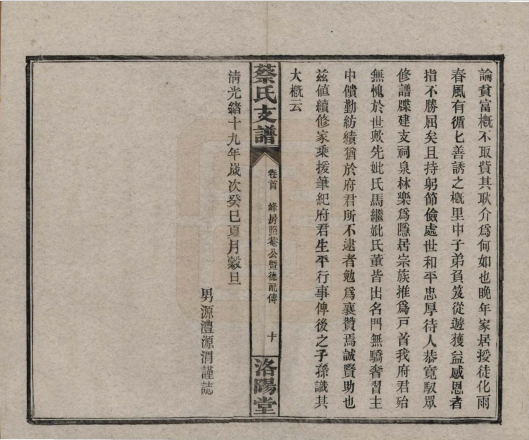 論貧富概不取費其耿介為何如也晚年家居授徒化雨
春風有循匕善誘之概里中子弟負笈從遊獲益感恩者
指不勝屈矣且持躬節儉處世和平忠厚待人恭寬馭眾
修譜牒建支祠泉林樂為隱居宗族推為戶首我府君殆
無愧於世歟先妣氏馬繼妣氏董皆出名門無驕奢習主
中饋勤紡績猶於府君所不逮者勉為襄贊焉誠賢助也
茲值續修家乘援筆紀府君生平行事俾後之子孫識其
大概云
蔡氏支譜
卷首
峰房照菴公暨德配傳
十
洛陽堂
清光緒十九年歲次癸巳夏月穀旦
男源澧源渭謹誌